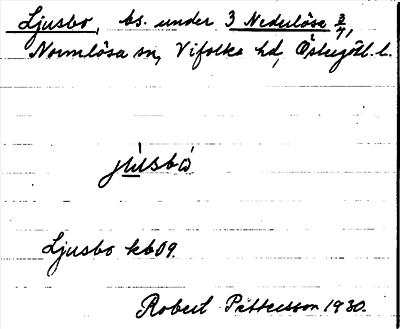 Ljusbo, bs. under 3 Nederlösa 3/7,
Normlösa sn, Vifolka hd, Östergötl. l.
jùsbω
Ljusbo kb09.
Robert Pettersson 1930.